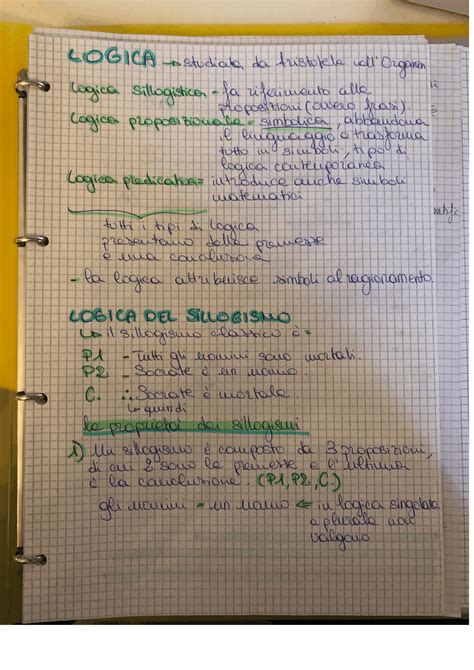 LOGICA → studiata da Aristotele nell'Organon
Logica sillogistica = fa riferimento alle
proposizioni (ovvero frasi)
Logica proposizionale = simbolica, abbandona
il linguaggio e trasforma
tutto in simboli, tipo di
logica contemporanea
Logica predicativa = introduce anche simboli
matematici
tutti i tipi di logica
presentano delle premesse
e una conclusione
- la logica attribuisce simboli al ragionamento.
LOGICA DEL SILLOGISMO
↳ il sillogismo classico è:
P1 - Tutti gli uomini sono mortali.
P2 - Socrate è un uomo.
C. ∴ Socrate è mortale.
↳ quindi
le proprietà dei sillogismi
1) Un sillogismo è composto da 3 proposizioni,
di cui 2 sono le premesse e l'ultima
è la conclusione. (P1, P2, C.)
gli uomini = un uomo ⇐ in logica singolare
e plurale non
valgono